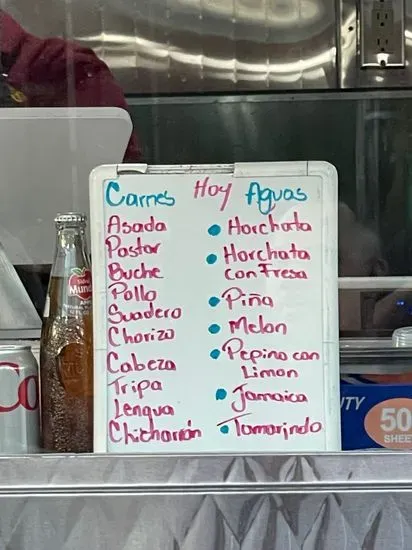 Carnes Hoy Aguas
Asada
Pastor
Buche
Pollo
Suadero
Chorizo
Cabeza
Tripa
Lengua
Chicharrón
Horchata
Horchata
con Fresa
Piña
Melon
Pepino con
Limon
Jamaica
Tamarindo
Sidral
Mundet
UTY
50
SHEE